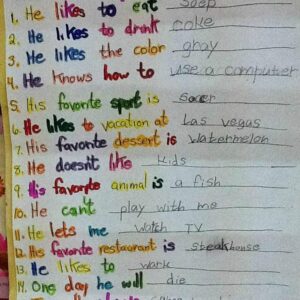 1. He likes to eat Soup
2. He likes to drink coke
3. He likes the color gray
4. He Knows how to use a computer
5. His favorite sport is Soccer
6. He likes to vacation at Las vegas
7. His favorite dessert is watermelon
8. He doesn't like kids
9. His favorite animal is a fish
10. He can't play with me
11. He lets me watch TV
12. His favorite restaurant is steakhouse
13. He likes to work
14. One day he will die